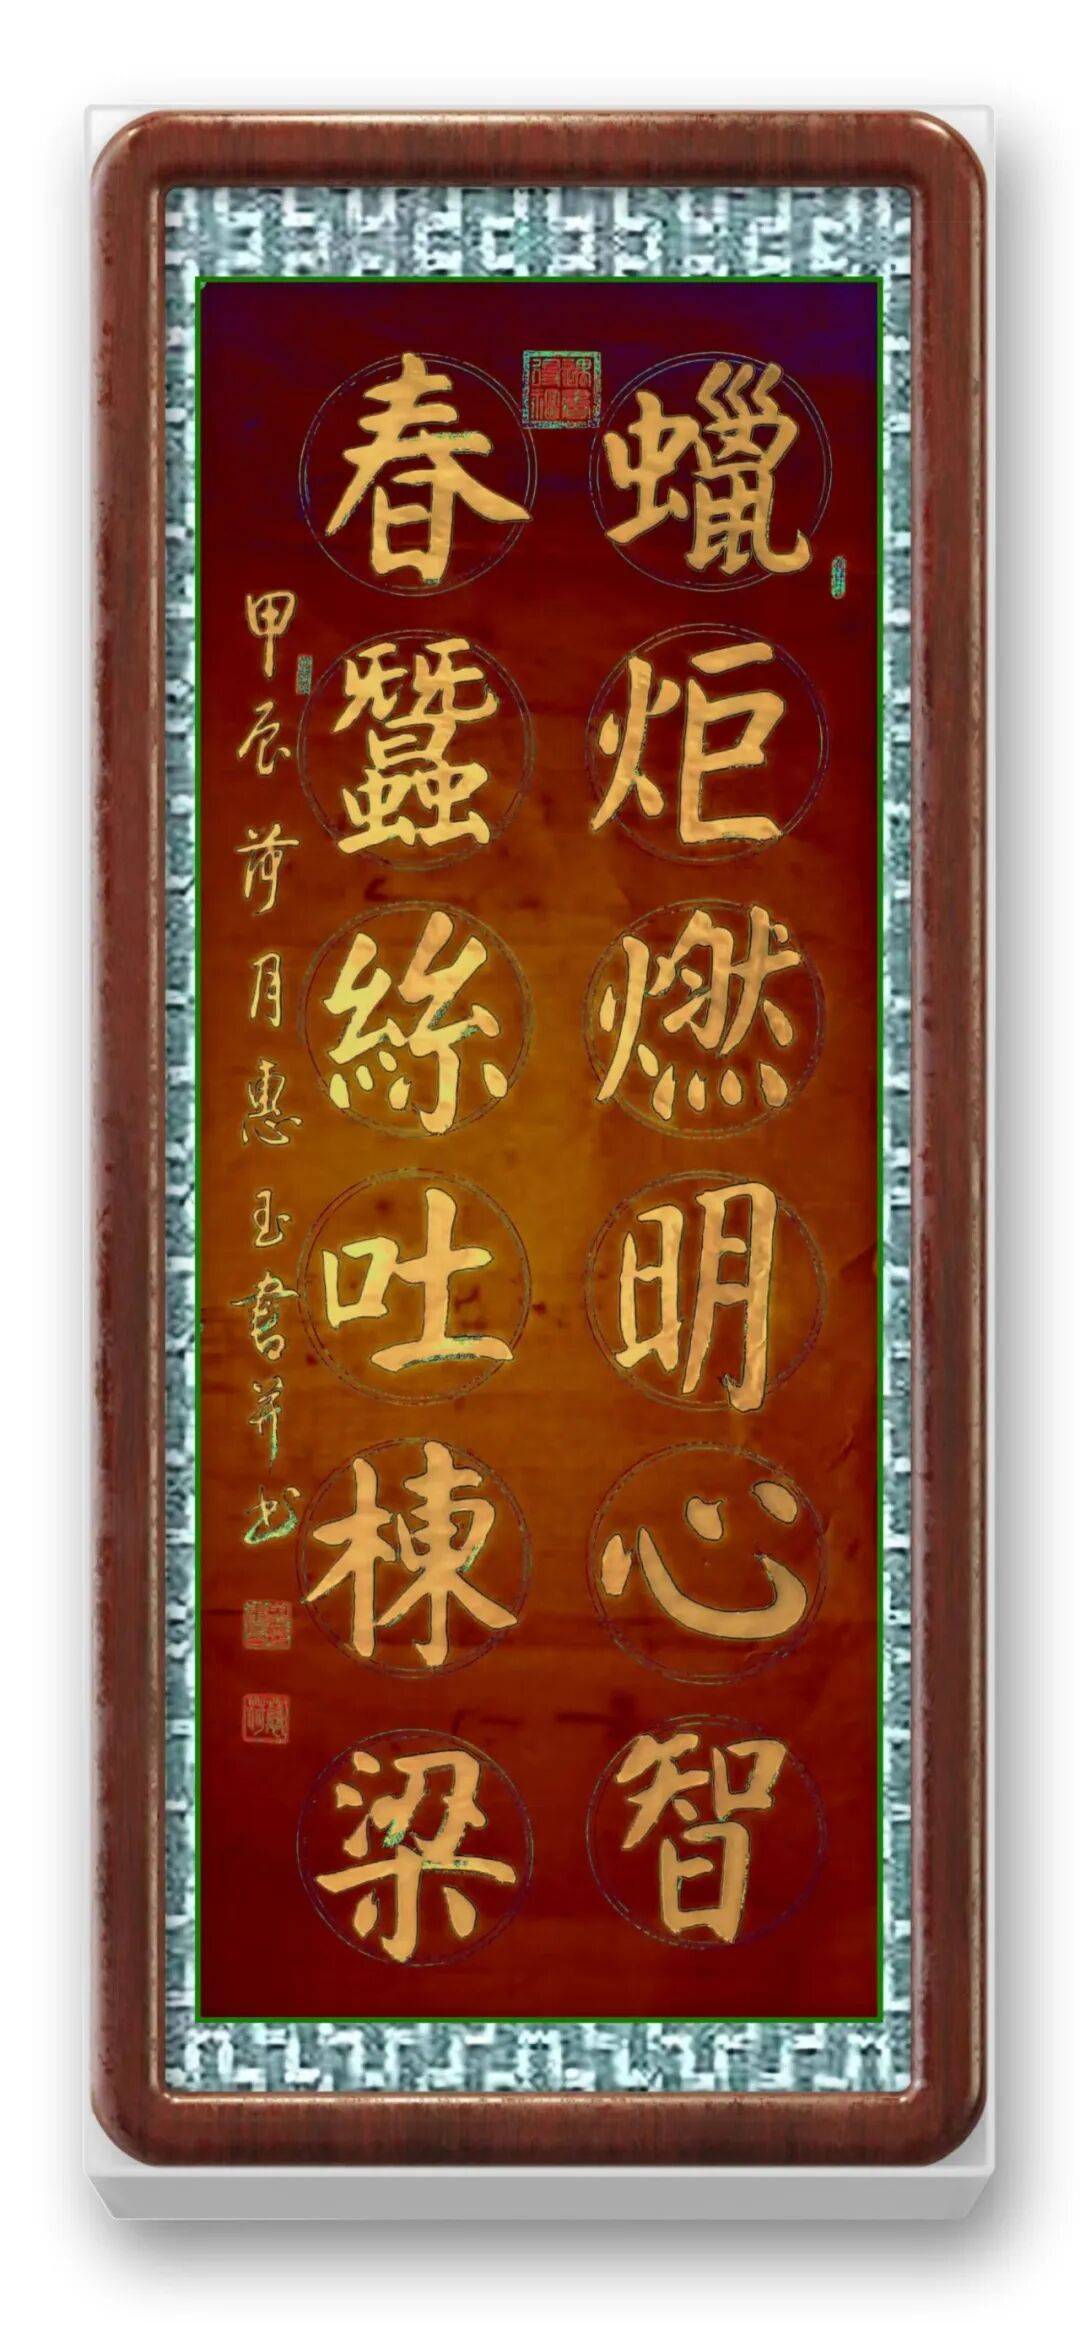 蠟炬燃明心智
春蠶絲吐棟梁
甲辰荷月惠玉書并书